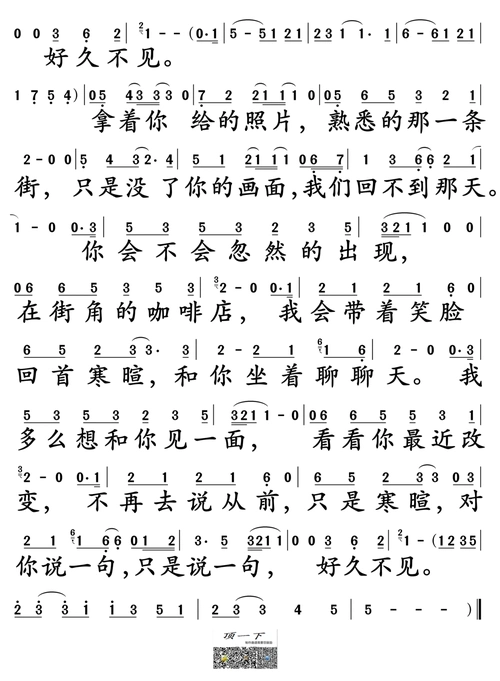 0 0 3 6 2 | 2 1 - - (0·1 | 5 - 5 1 2 1 | 2 3 1 1· 1 | 6 - 6 1 2 1 |
好久不见。
1 7 5 4) | 0 5 4 3 3 3 0 | 7 2 2 1 1 1 0 | 0 5 6 5 3 2 1 |
拿着你 给的照片, 熟悉的那一条
2 - 0 0 | 5 4 3 2· 4 | 5 1 2 1 1 0 6 7 | 1 3 6 6 2 2 |
街, 只是没了你的画面,我们回不到那天。
1 - 0 0·3 | 5 3 5 3 | 5 2 3 5 | 3 2 1 1 0 0 |
你会不会忽然的出现,
0 6 6 5 3 5 8 | 3 2 - 0 0·1 | 2 1 2 1 | 2 1 1 6 |
在街角的咖啡店, 我会带着笑脸
6 5 2 3 3· 3 | 2 - 2 1 | 6 1 1 6 2 2 | 2 - 0 0·3 |
回首寒暄,和你坐着聊聊天。 我
5 3 5 3 | 5 2 3 5 | 3 2 1 1 - 0 | 0 6 6 5 3 5 |
多么想和你见一面, 看看你最近改
3 2 - 0 0·1 | 2 1 2 1 | 2 1 6 0 | 6 5 2 3 3 2 |
变, 不再去说从前,只是寒暄,对
2 1 6 1 6 6 0 1 2 | 3· 5 3 2 1 1 | 0 0 3 6 2 | 2 1 - (1 2 3 5 |
你说一句,只是说一句, 好久不见。
2 3 3 1 | 1 3 5 1 | 2 3 3 4 5 | 5 - - - )
项一下